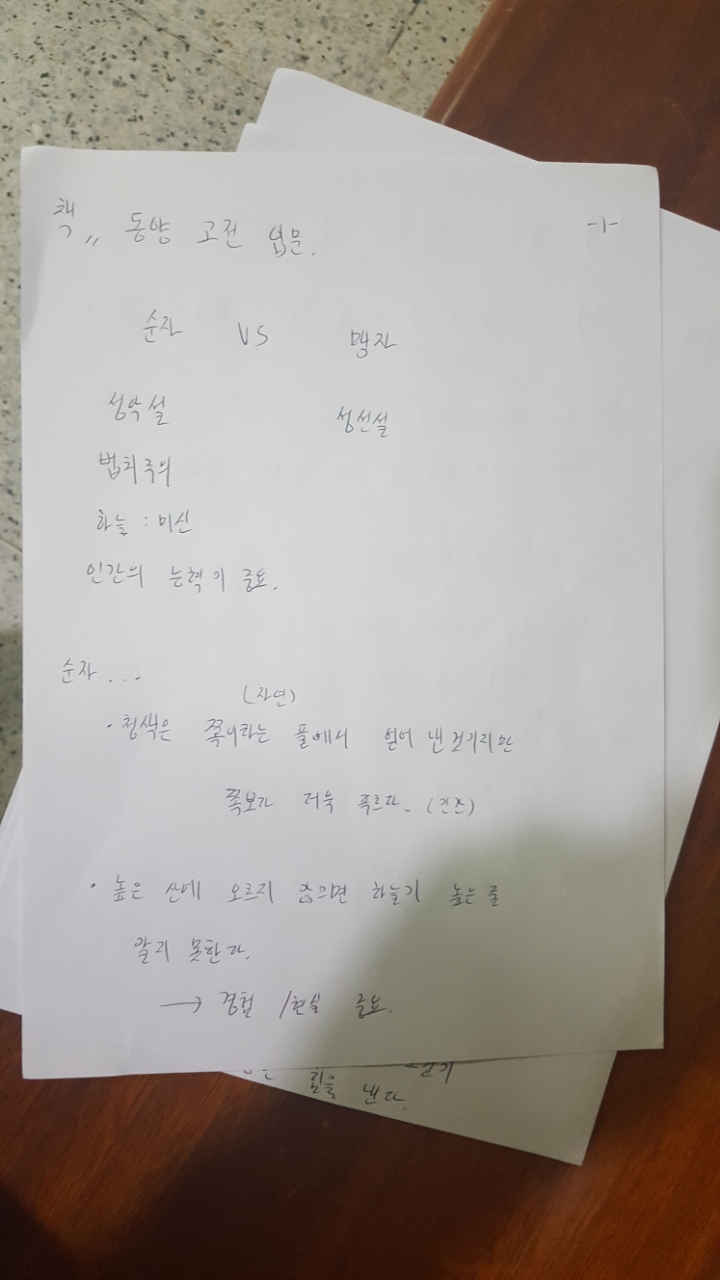 책,, 동양 고전 입문. -1-
순자 VS 맹자
성악설 성선설
법치주의
하늘 : 미신
인간의 능력이 중요.
순자...
(자연)
· 청색은 쪽이라는 풀에서 얻어 낸것이지만
쪽보다 더욱 푸르다.
· 높은 산에 오르지 않으면 하늘이 높은 줄
알지 못한다.
→ 경험 /현실 중요.
힘을 낸다.